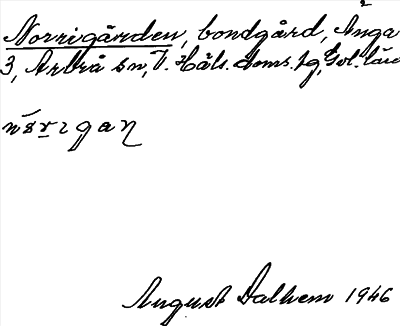 Norrigården, bondgård, Änga
3, Arbrå sn, V. Häls. doms. fg, Gvl. län
August Dalhem 1946